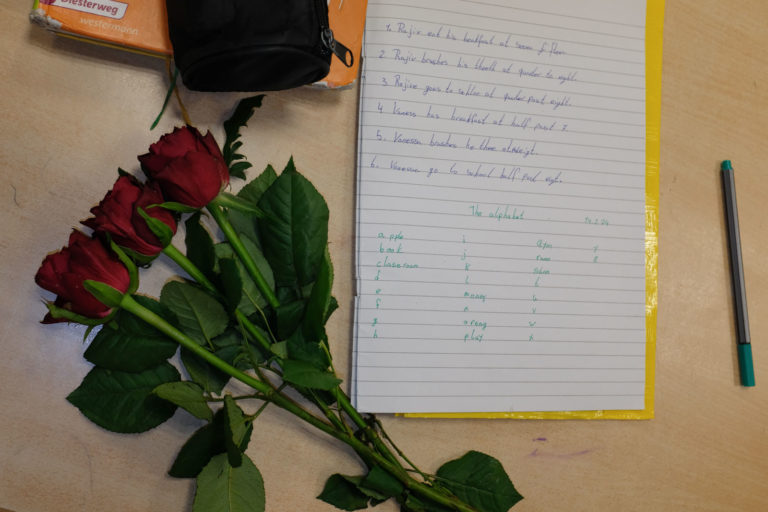 Diesterweg
westermann
1. Rajiv eat his breakfast at seven
2. Rajiv brushes his theeth at quarter to eight.
3. Rajiv goes to at quarter past eight.
4. Vaness has breakfast at half past 7.
5. Vanessa brushes he three at eight.
6. Vanessa go to school half past eigt.
The alphabet
apple i y
book j z
classroom k
d l t
e money u
f n v
g orang w
h play x